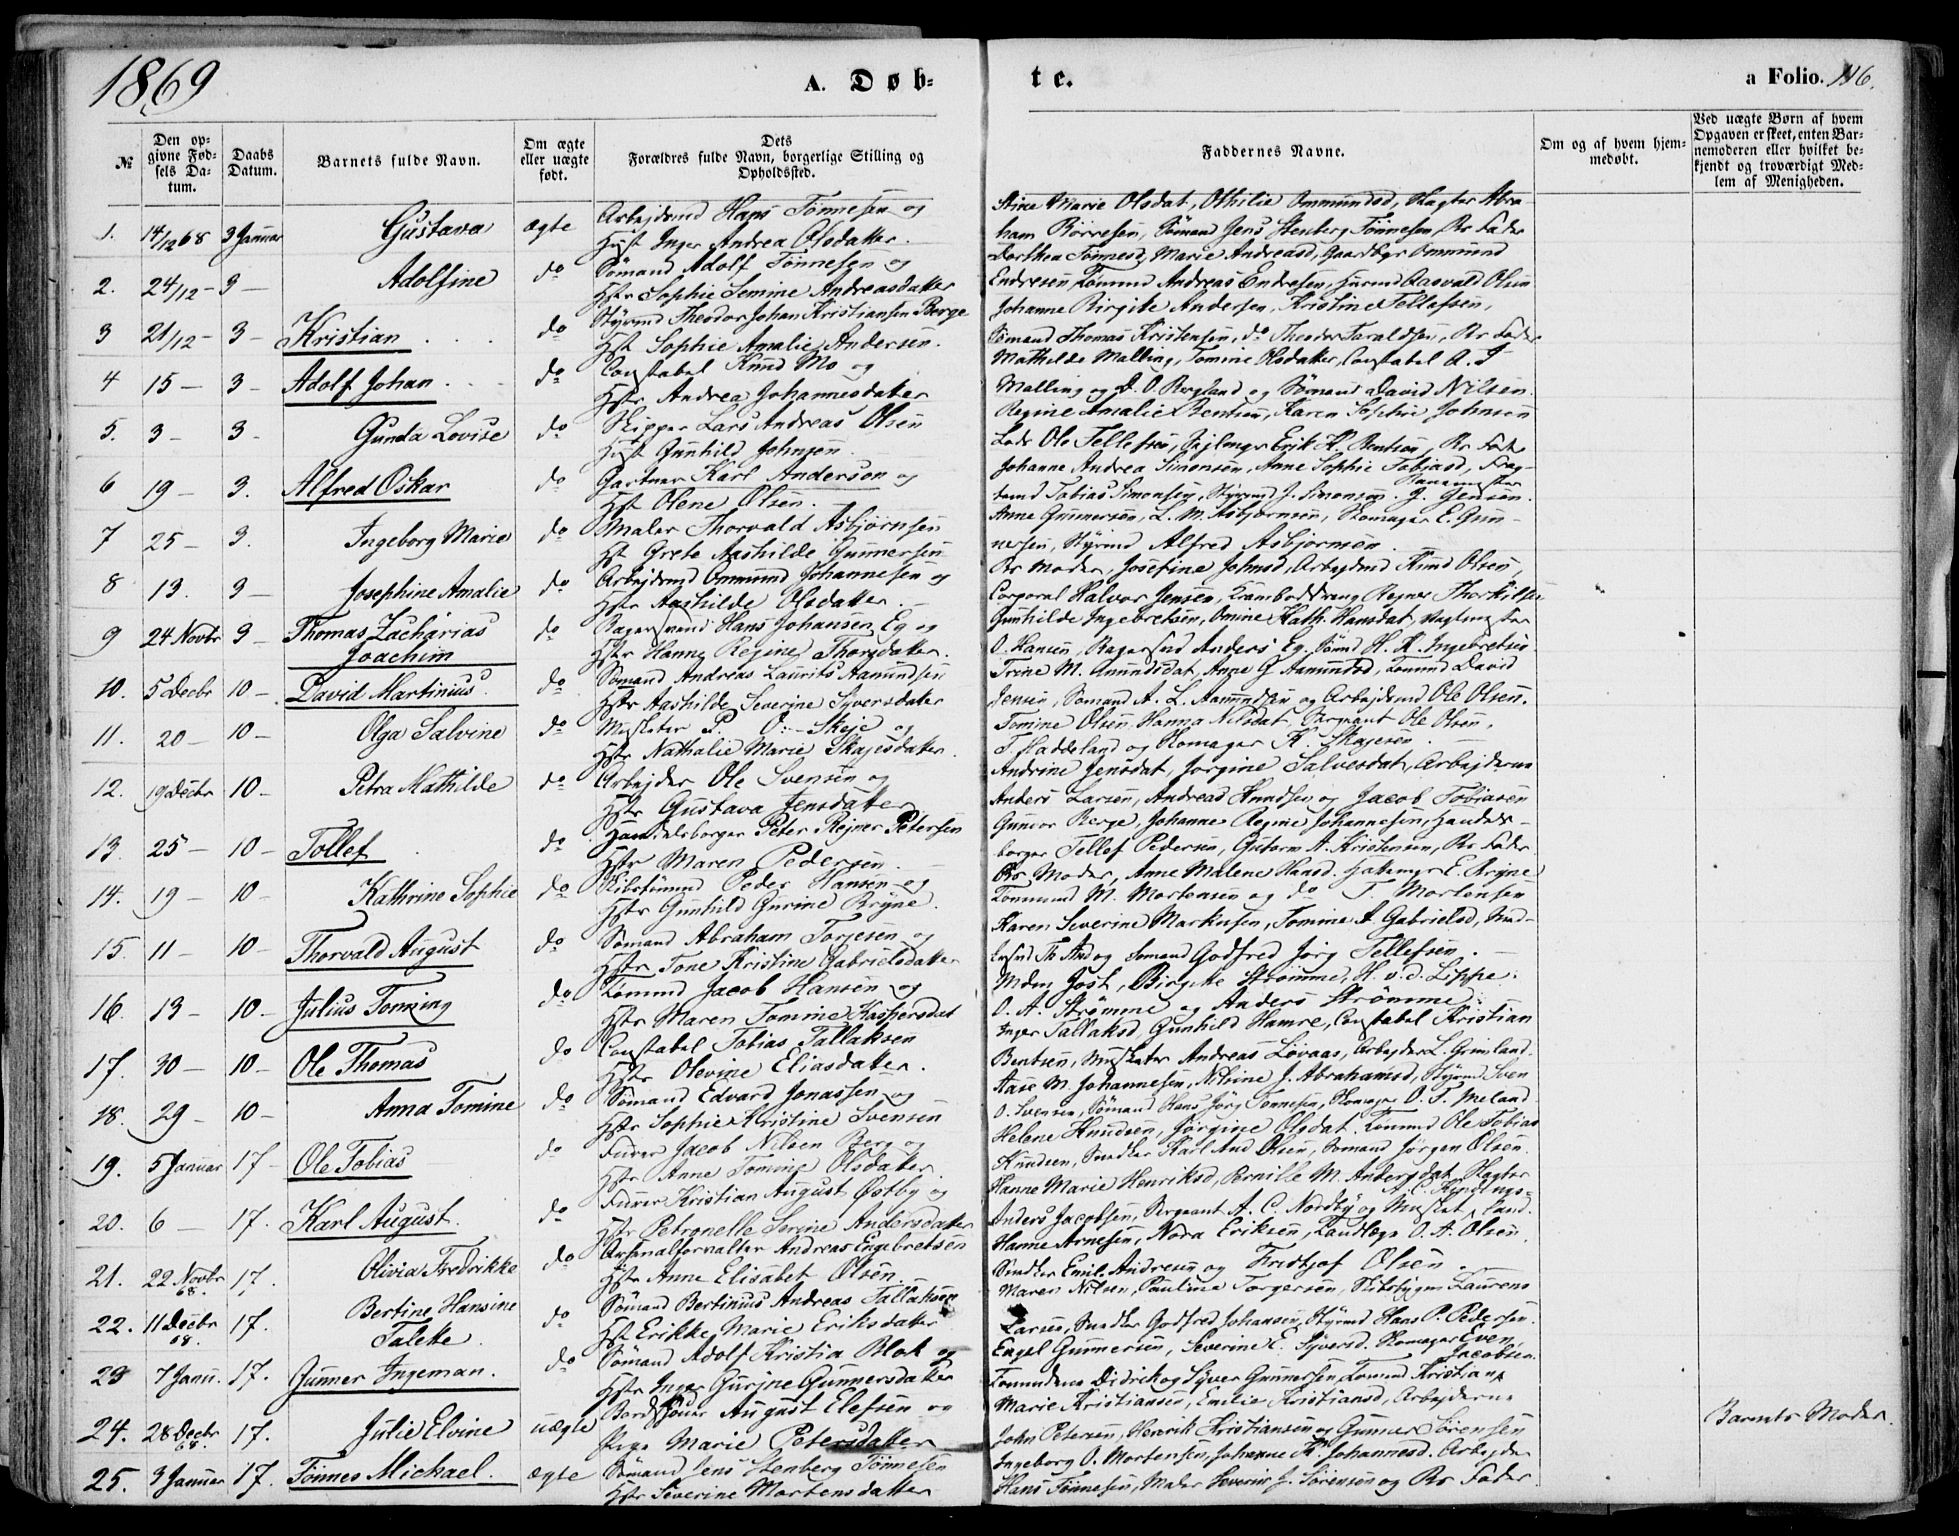 1869
A. Døb-
te.
a Folio. 116.
№
Den opgivne Fødsels Datum.
Daabs Datum.
Barnets fulde Navn.
Om ægte eller uægte født.
Dets Forældres fulde Navn, borgerlige Stilling og Opholdssted.
Faddernes Navne.
Om og af hvem hjemmedøbt.
Ved uægte Børn af hvem Opgaven er skeet, enten Barnemoderen eller hvilket bekjendt og troværdigt Medlem af Menigheden.
1. 14/12 68 3 Januar Gustava ægte Arbejdsmd Hans Tønnesen og
Hust Inger Andrea Olsdatter.
Stine Marie Olsdat, Othilie Ommundsd, Slagter Abra-
ham Børresen, Sømand Jens Stenberg Tønnesen, Br Fader
2. 24/12 – 3 – Adolfine do Sømand Adolf Tønnesen og
Hstr Sophie Semine Andreasdatter
Dorthea Tønnesd, Marie Andreasd, Gaardbgr Ommund
Endresen, Tømmd Andreas Endresen, Aasvald Olsen
3 21/12 – 3 – Kristian do Styrmd Theodor Johan Kristiansen Berge
Hst Sophie Amalie Andersen.
Johanne Birgite Andersen, Kristine Tellefsen,
Sømand Thomas Kristensen, do Theodor Taraldsen, Br Fader
4 15 – 3 – Adolf Johan do Constabel Knud Mo og
Hstr Andrea Johannesdatter
Mathilde Malling, Tomine Olsdatter, Constabel A. T
Malling og D. O. Bergland og Sømand David Nilsen.
5. 3 – 3 – Gunda Lovise do Skipper Lars Andreas Olsen
Hust Gunhild Johnsen.
Regine Amalie Bentsen, Karen Sophie Johnsen
Lods Ole Tellefsen, Sejlmgr Erik A. Bentsen, Br Fader
6 19 – 3. Alfred Oskar do Gartner Karl Anderson og
Hst Olene Olsen.
Johanne Andrea Simonsen, Anne Sophie Tobiasd,
Tobias Simonsen, Styrmd J. Simonsen. J. Jensen.
7 25 – 3. Ingeborg Marie do Maler Thorvald Asbjørnsen
Hst Grete Aashilde Gunnersen
Anne Gunnersen, L. M. Asbjørnsen, Skomager E. Gun-
nersen, Styrmd Alfred Asbjørnsen.
8 13. 3 – Josephine Amalie do Arbejdsmd Ommund Johannesen og
Hstr Aashilde Olsdatter.
Br Moder, Josefine Johnsd, Arbejdsmd Knud Olsen,
Corporal Halvor Jensen, Krambodsvend Regner Thorkilsen
9 24 Novbr 3 – Thomas Zacharias
Joachim do Bagersvend Hans Johansen Eg og
Hstr Hanne Regine Thorsdatter.
Gunhilde Ingebretsen, Omine Kath. Hansdat, Vagtmester
O. Hansen, Bagersvd Anders Eg, Sømd H. K. Ingebretsen
10. 5 Decbr 10 – David Martinius do Sømand Andreas Laurits Aamundsen
Hstr Aashilde Severine Syversdatter
Trine M. Amundsdat, Anne G Aamundsd, Tømmd David
Jensen, Sømand A. L. Aamundsen og Arbejdsmd Ole Olsen.
11. 20 – 10 – Olga Salvine do Musketer P. O. Skeje og
Hstr Nathalie Marie Skajesdatter.
Tomine Olsen, Hanna Nilsdat, Sergeant Ole Olsen,
T. Haddeland og Skomager K. Skajesen.
12. 19 Decbr 10 – Petra Mathilde do Arbejder Ole Svensen og
Hstr Gustava Jensdatter
Andrine Jensdat, Jorgine Salvesdat, Arbejderne
Anders Larsen, Andreas Knudsen og Jacob Tobiasen
13. 25 – 10 – Tollef do Handelsborger Peter Rejner Petersen
Hstr Maren Pedersen.
Gunvor Berge, Johanne Regine Johannesen, Handels-
borger Tellef Pedersen, Guttorm A. Kristensen, Br Fader
14. 19 – 10 – Kathrine Sophie do Skibstømmd Peder Hansen og
Hstr Gunhild Gurine Bryne.
Br Moder, Anne Malene Hansd. E. Bryne
Tømmand M. Mortensen og do T. Mortensen
15. 11 – 10 – Thorvald Angust do Sømand Abraham Torjesen og
Hstr Tone Kristine Gabrielsdatter
Karen Severine Markusen, Tomine A. Gabrielsd,
og Sømand Godfred Jørg Tellefsen.
16. 13 – 10 – Julius Torming do Tømmd Jacob Hansen og
Hstr Maren Tomine Kaspersdat
Mdm Jost, Birgitte Strømme, H. v. d. Lippe.
O. A. Strømme og Anders Strømme.
17. 30 – 10 – Ole Thomas do Constabel Tobias Tallaksen
Hstr Olevine Eliasdatter.
Inger Tallaksd, Gunhild Hamre, Constabel Kristian
Bentsen, Musketer Andreas Løvaas, Arbejder L. Grimland.
18. 29 – 10 – Anna Tomine do Sømand Edvard Jonassen og
Hstr Sophie Kristine Svensen
Aase M. Johannesen, Nilsine J. Abrahamsd, Styrmd Sven
O. Svensen, Sømand Hans Jørg Tønnesen, Skomager O. T. Meland
19. 5 Januar 17 – Ole Tobias do Furer Jacob Nilsen Berg og
Hstr Anne Tomine Olsdatter.
Helene Knudsen, Jørgine Olsdat. Tømmd Ole Tobias
Knudsen, Snedker Karl And Olsen, Sømand Jørgen Olsen.
20. 6 – 17. Karl August. do Furer Kristian August Østby og
Hstr Petronelle Serine Andersdatter
Hanne Marie Henriksd, Pernille M. Andersdat, Slagter
Anders Jacobsen, Sergeant A. C. Nordby og Musket
21. 22 Novbr 68. 17. Olivia Fredrikke do Arsenalforvalter Andreas Engebretsen
Hstr Anne Elisabet Olsen.
Hanne Arnesen, Nora Eriksen, Tandlæge O. A. Olsen.
Snedker Emil Andresen og Fredtjof Olsen.
22. 11 Decbr 68. 17. Bertine Hansine
Taleke. do Sømand Bertinius Andreas Tallaksen
Hst Erikke Marie Eriksdatter
Maren Nilsen, Pauline Torgersen, Skibsbygm Laurens
Larsen, Snedker Godfred Johansen, Styrmd Hans P. Pedersen.
23 7 Janu. 17. Gunner Ingeman. do Sømand Adolf Kristia Blok og
Hstr Inger Gurine Gunnersdatter
Engel Gunnersen, Severine E. Syversd. Skomager Even Jacobsen.
Tømmdene Didrik og Syver Gunnersen, Tømmd Kristian
24. 28 Decbr 68. 17. Julie Elvine uægte August Elefsen og
Pige Marie Petersdatter
Marie Kristiansen, Emilie Kristiansd, Arbejderne
John Petersen, Henrik Kristiansen og Gunner Sørensen
Barnets Moder.
25. 3 Januar 17. Tønnes Michael. ægte Sømand Jens Stenberg Tønnesen
Hstr Severine Mortensdatter
Ingeborg O. Mortensen, Johanne Johannesd. Arbejder
Hans Tønnesen, Maler Severin J. Sørensen og Br Fader